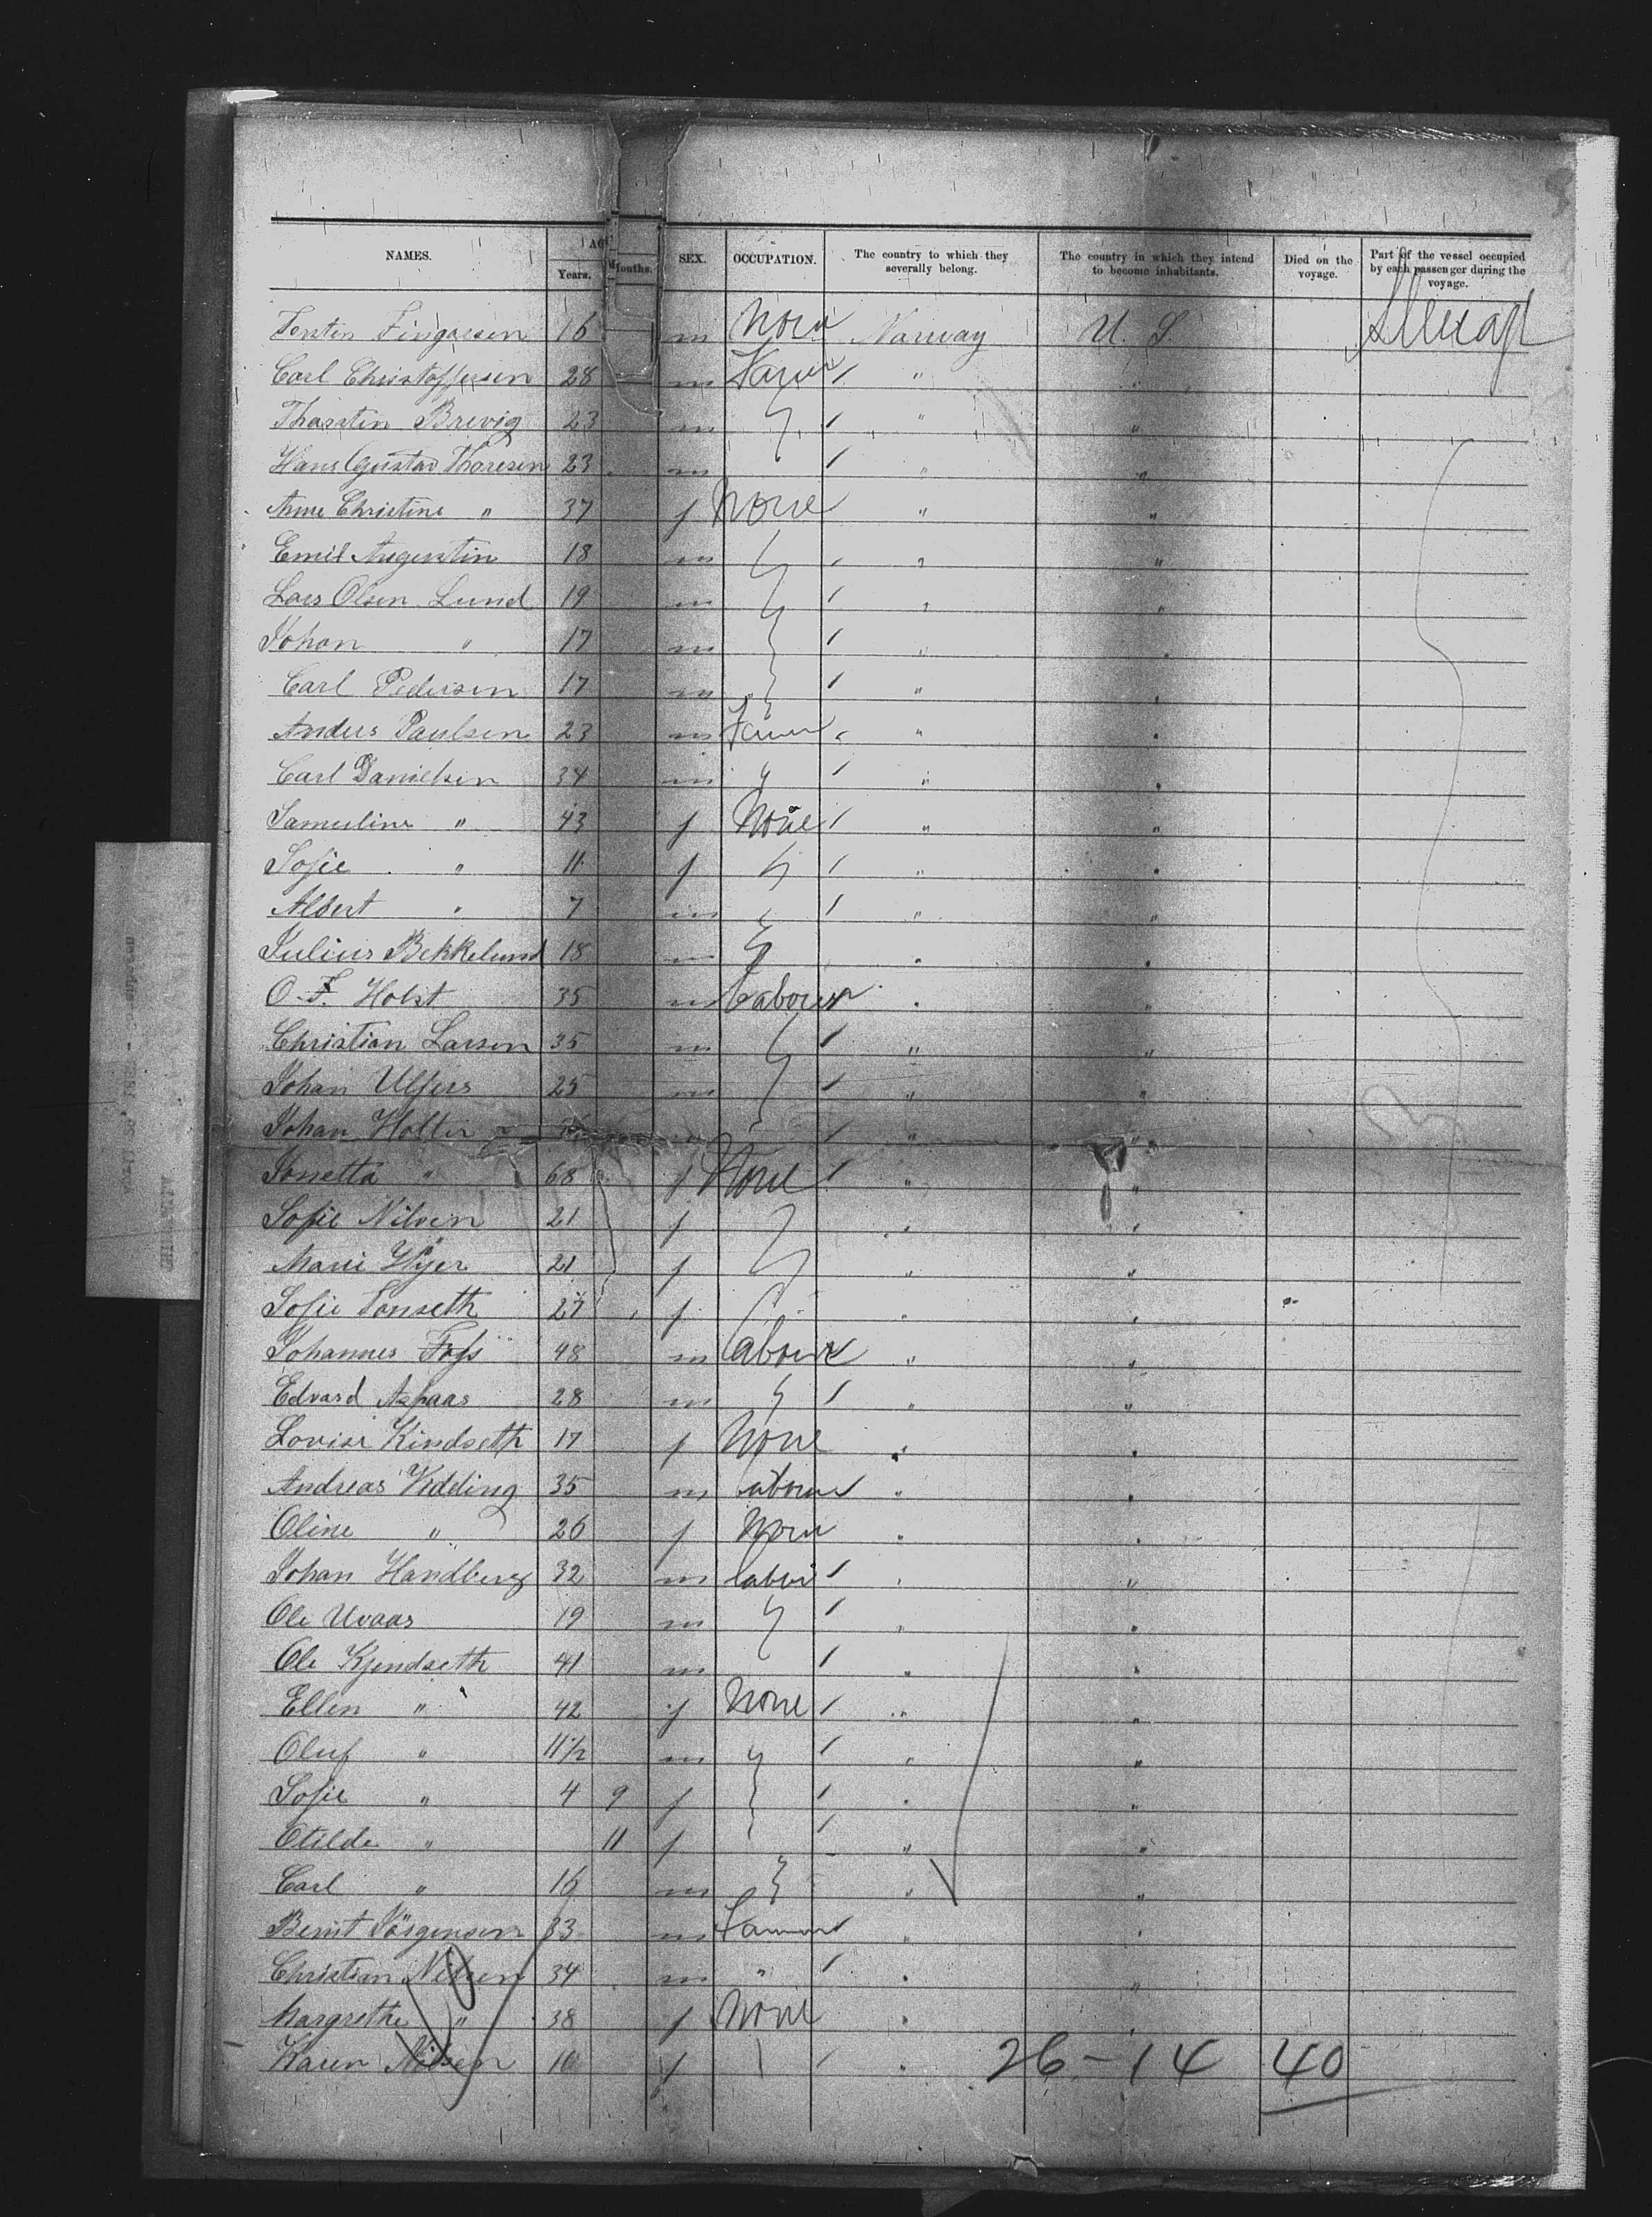 NAMES. AGE Years. Months. SEX. OCCUPATION. The country to which they severally belong. The country in which they intend to become inhabitants. Died on the voyage. Part of the vessel occupied by each passenger during the voyage.
16 m None Norway U. S.
Carl Christoffersen 28 m Farmer / " "
Brevig 23 m / " "
Hans Gustav Thoresen 23 m / " "
Anne Christine " 37 f None " "
Emil Augustin 18 m " "
Lars Olsen Lund 19 m / " "
Johan " 17 m / " "
Carl Pedersen 17 m / " "
Anders Paulsen 23 m Farmer " "
Carl Danielsen 34 m / " "
Samueline " 43 f None / " "
Sofie " 11 f / " "
Albert " 7 m / " "
Julius Bekkelund 18 m " "
O. F. Holst 35 m Labourer " "
Christian Larsen 35 m / " "
Johan Ulfers 25 m / " "
Johan m / " "
Jonetta " 68 f None / " "
Sofie Nilsen 21 f " "
Marie 21 f " "
Sofie Tonseth 27 f " "
Johannes Foss 48 m Labourer " "
Edvard Aspaas 28 m / " "
Lovise Kindseth 17 f None " "
Andreas Vedding 35 m " "
Oline " 26 f None " "
Johan Handberg 32 m / " "
Ole Uvaas 19 m / " "
Ole Kjendseth 41 m / " "
Ellen " 42 f None / " "
Oluf " 11 1/2 m / " "
Sofie " 4 9 f / " "
Otilde " 11 f / " "
Carl " 16 m " "
Bernt Jörgensen 33 m Farmer " "
Christian Nilsen 34 m " / " "
Margrethe " 38 f None " "
Karen Nilsen 16 f / "
26 - 14 40